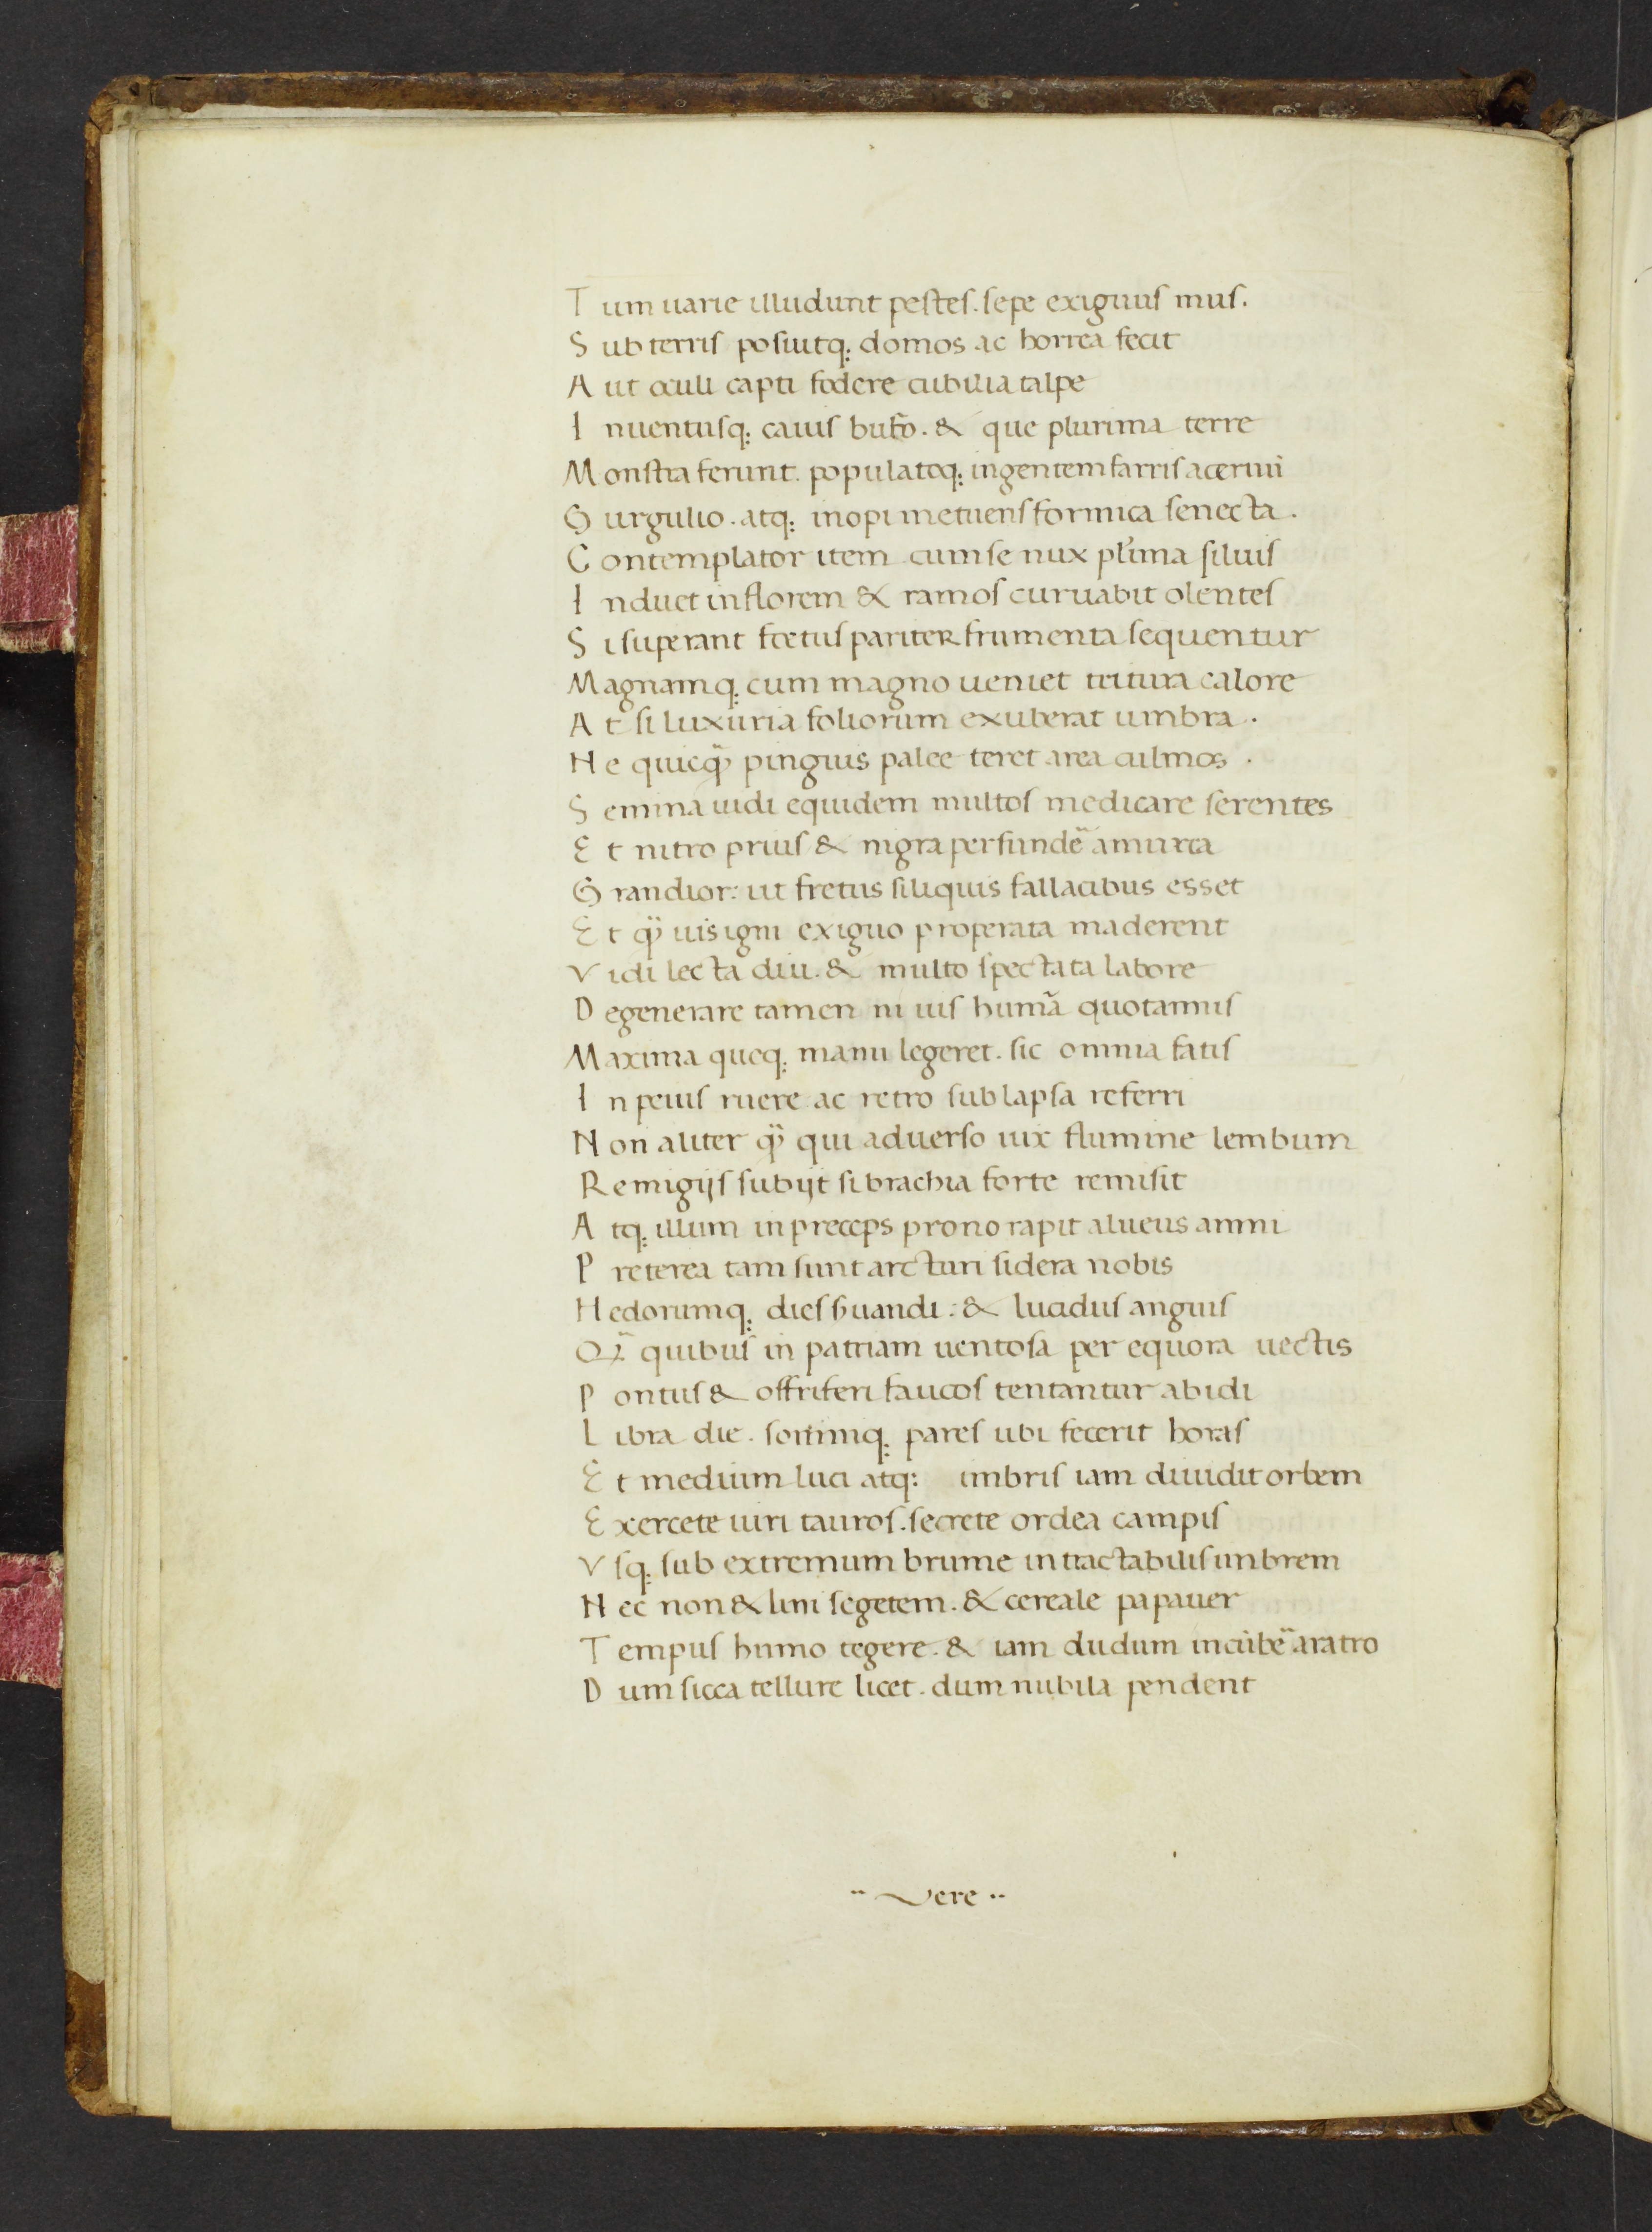 Tum uarie illudunt pestes. sepe exiguus mus.
Sub terris posuitq; domos ac horrea fecit
Aut oculi capti fodere cubilia talpe
Inuentusq; cauis bufo. & que plurima terre
Monstra ferunt. populatq; ingentem farris acerum
Gurgulio. atq; inopi metuens formica senecta.
Contemplator item cum se nux pl'ima siluis
Induet in florem & ramos curuabit olentes
Si superant foetus pariter frumenta sequentur
Magnamq; cum magno ueniet tritura calore
At si luxuria foliorum exuberat umbra.
Ne quicq̃ pinguis palee teret area culmos.
Semina uidi equidem multos medicare serentes
Et nitro prius & nigra perfundẽ amurca
Grandior: ut fretus siliquis fallacibus esset
Et q̃uis igni exiguo properata maderent
Vidi lecta diu. & multo spectata labore
Degenerare tamen ni uis humã quotannis
Maxima queq; manu legeret. sic omnia fatis
In peius ruere ac retro sublapsa referri
Non aliter q̃ qui aduerso uix flumine lembum
Remigijs subijt si brachia forte remisit
Atq; illum in preceps prono rapit alueus amni
Preterea tam sunt arcturi sidera nobis
Hedorumq; dies ẜuandi: & lucidus anguis
Q̃ quibus in patriam uentosa per equora uectis
Pontus & ostriferi fauces tentantur abidi
Libra die. somniq; pares ubi fecerit horas
Et medium luci atq: imbris iam diuidit orbem
Exercete uiri tauros. secrete ordea campis
Vsq; sub extremum brume intractabilis imbrem
Nec non & lini segetem. & cereale papauer
Tempus humo tegere. & iam dudum incũbẽ aratro
Dum sicca tellure licet. dum nubila pendent
.. Vere ..